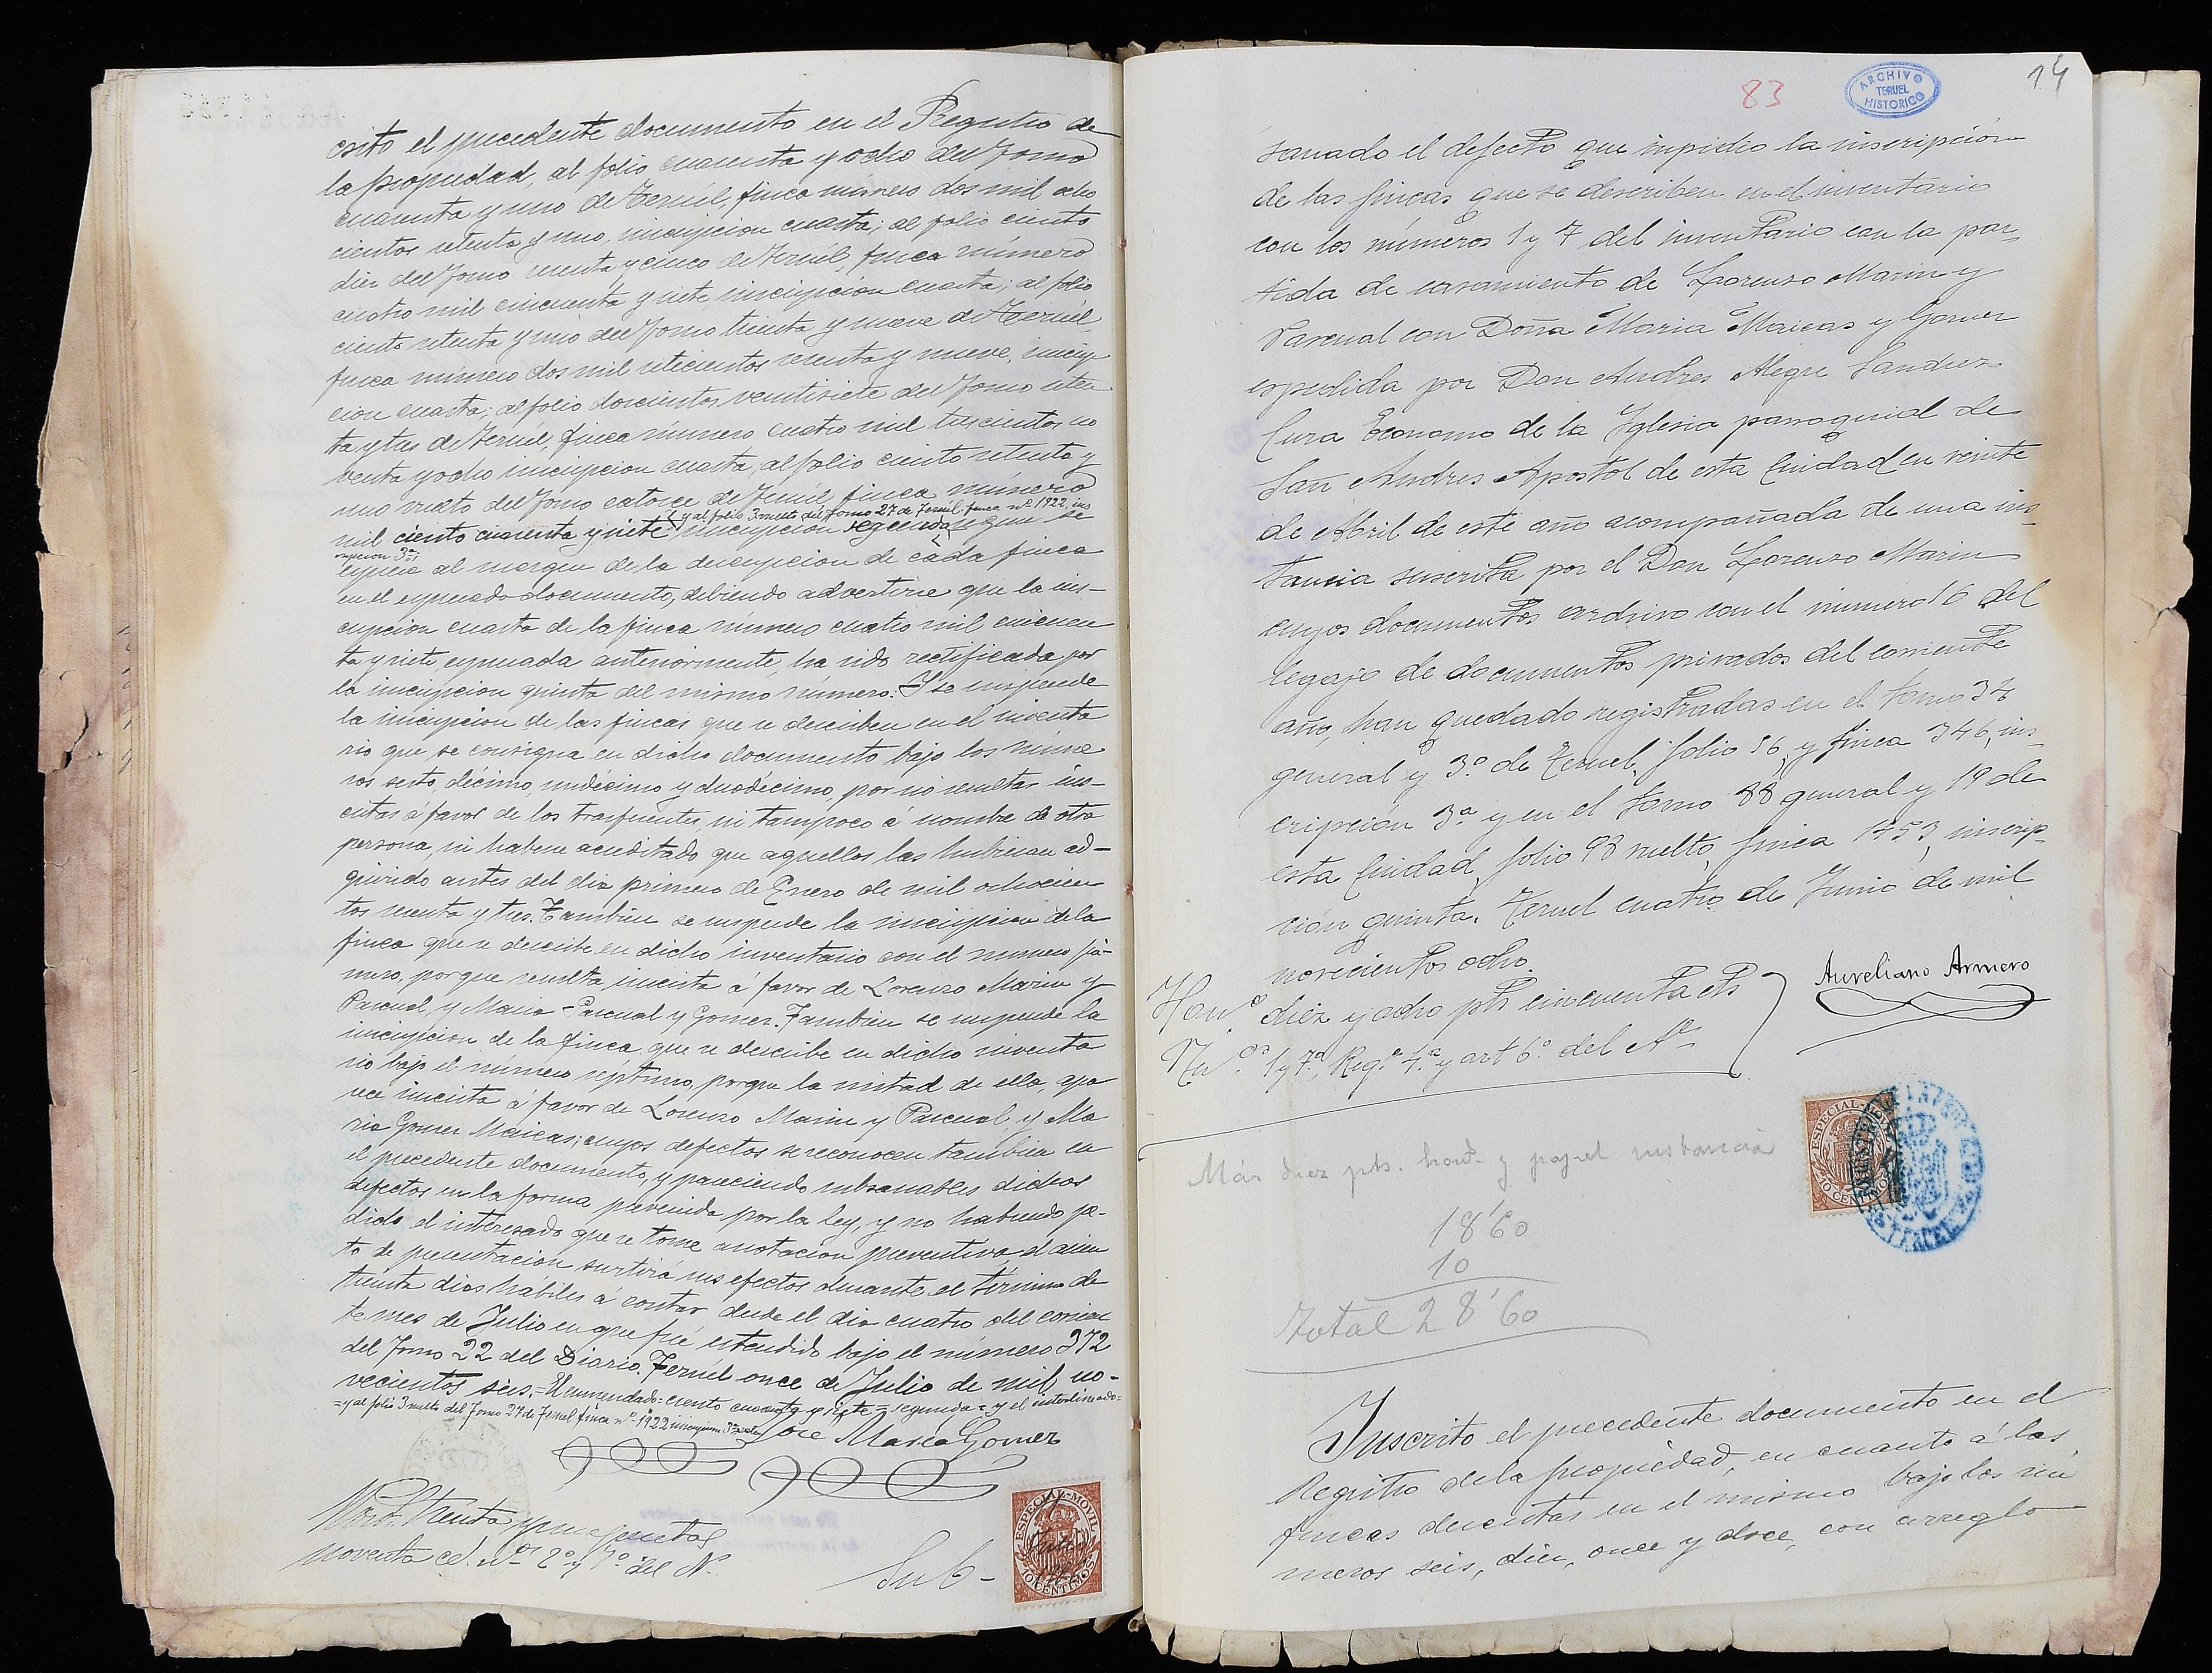 crito el precedente documento en el Registro de
la propiedad, al folio cuarenta y ocho del Tomo
cuarenta y uno de Teruél, finca número dos mil ocho
cientos setenta y uno, inscripcion cuarta; al folio ciento
diez del Tomo sesenta y cinco de Teruél, finca número
cuatro mil cincuenta y siete, inscripcion cuarta; al folio
ciento setenta y uno del Tomo treinta y nueve de Teruél,
finca número dos mil setecientos sesenta y nueve, inscrip
cion cuarta; al folio doscientos veintisiete del Tomo seten
ta y tres de Teruél, finca número cuatro mil trescientos no
venta y ocho inscripcion cuarta, al folio ciento setenta y
uno vuelto del Tomo catorce de Teruél, finca número
y al folio 3 vuelto del Tomo 27 de Teruél, finca nº 1922, ins
mil ciento cuarenta y siete inscripcion segunda, segun se
cripcion 3ª;
expresa al margen de la descripcion de cada finca
en el expresado documento, debiendo advertirse que la ins-
cripcion cuarta de la finca número cuatro mil cincuen
ta y siete, expresada anteriormente, ha sido rectificada por
la inscripcion quinta del mismo número. Y se suspende
la inscripcion de las fincas que se describen en el inventa
rio que se consigna en dicho documento bajo los núme
ros sesto, décimo, undécimo y duodécimo, por no resultar ins-
critas á favor de los trasferentes, ni tampoco á nombre de otra
persona, ni haberse acreditado que aquellos las hubieran ad-
quirido antes del dia primero de Enero de mil ochocien
tos sesenta y tres. Tambien se suspende la inscripcion de la
finca que se describe en dicho inventario con el número pri-
mero, porque resulta inscrita á favor de Lorenzo Marin y
Pascual, y Maria Pascual y Gomez. Tambien se suspende la
inscripcion de la finca que se describe en dicho inventa
rio bajo el número septimo, porque la mitad de ella, apa
rece inscrita á favor de Lorenzo Marin y Pascual, y Ma
ria Gomez Maicas; cuyos defectos se reconocen tambien en
el precedente documento, y pareciendo subsanables dichos
defectos en la forma prevenida por la ley, y no habiendo pe-
dido el interesado que se tome anotacion preventiva, el asien
to de presentacion surtirá sus efectos durante el término de
treinta dias hábiles á contar desde el dia cuatro del corrien
te mes de Julio en que fué estendido bajo el número 372
del Tomo 22 del Diario. Teruél once de Julio de mil no-
vecientos seis.=El enmendado=ciento cuarenta y siete=segunda=y el interlineado=
=y al folio 3 vuelto del Tomo 27 de Teruel, finca nº 1922 inscripcion 3ª=valen
José Maria Gomez
Hon.s Treinta y nueve pesetas
noventa cs. nºs 2º y 7º del Aº.
Sub-
ESPECIAL MOVIL
10 CENTIMOS
83
ARCHIVO
TERUEL
HISTORICO
14
sanado el defecto que impidio la inscripción
de las fincas que se describen en el inventario
con los números 1 y 7 del inventario con la par-
tida de casamiento de Lorenzo Marin y
Pascual con Doña Maria Maicas y Gomez
expedida por Don Andres Alegre Sanchez
Cura Economo de la Iglesia parroquial de
San Andres Apostol de esta Ciudad en veinte
de Abril de este año acompañada de una ins-
tancia suscrita por el Don Lorenzo Marin
cuyos documentos archivo con el numero 16 del
legajo de documentos privados del corriente
año, han quedado registradas en el tomo 34
general y 3.º de Teruel, folio 56, y finca 346, ins-
cripción 3.ª y en el tomo 88 general y 19 de
esta Ciudad, folio 98 vuelto, finca 1453, inscrip-
ción quinta. Teruel cuatro de Junio de mil
novecientos ocho.
Aureliano Armero
Hon.s diez y ocho pts cincuenta cts
Nu.os 1 y 7º, Reg.ª 4.ª y art 6º del Al
ESPECIAL MOVIL
10 CENTIMOS
Más diez pts. hon.s y papel instancia
18'60
10
Total 28'60
Inscrito el precedente documento en el
Registro de la propiedad, en cuanto á las
fincas descritas en el mismo bajo los nú
meros seis, diez, once y doce, con arreglo